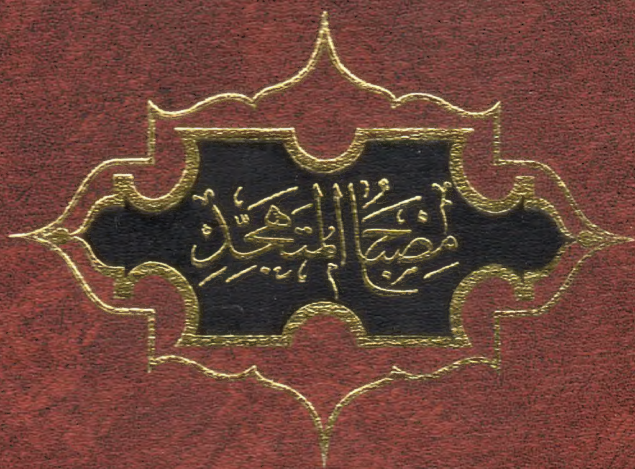 مِصْبَاحُ الْمُتَهَجِّدِ